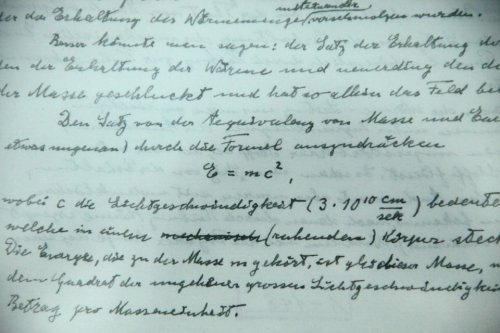 der das Erhaltung des Wärmemenge miteinander verschmolzen wurden.
Besser könnte man sagen: der Satz der Erhaltung der
den der Erhaltung der Wärme und neuerdings den de
der Masse geschluckt und hat so allein das Feld be
Den Satz von der Aequivalenz von Masse und Ene
etwas ungenau) durch die Formel auszudrücken
E = mc²,
wobei c die Lichtgeschwindigkeit (3 · 10¹⁰ cm/sek) bedeutet
welche in einem mechanisch (ruhenden) Körper steck
Die Energie, die zu der Masse m gehört, ist gleich dieser Masse, m
dem Quadrat der ungeheuer grossen Lichtgeschwindigkei
Betrag pro Masseneinheit.